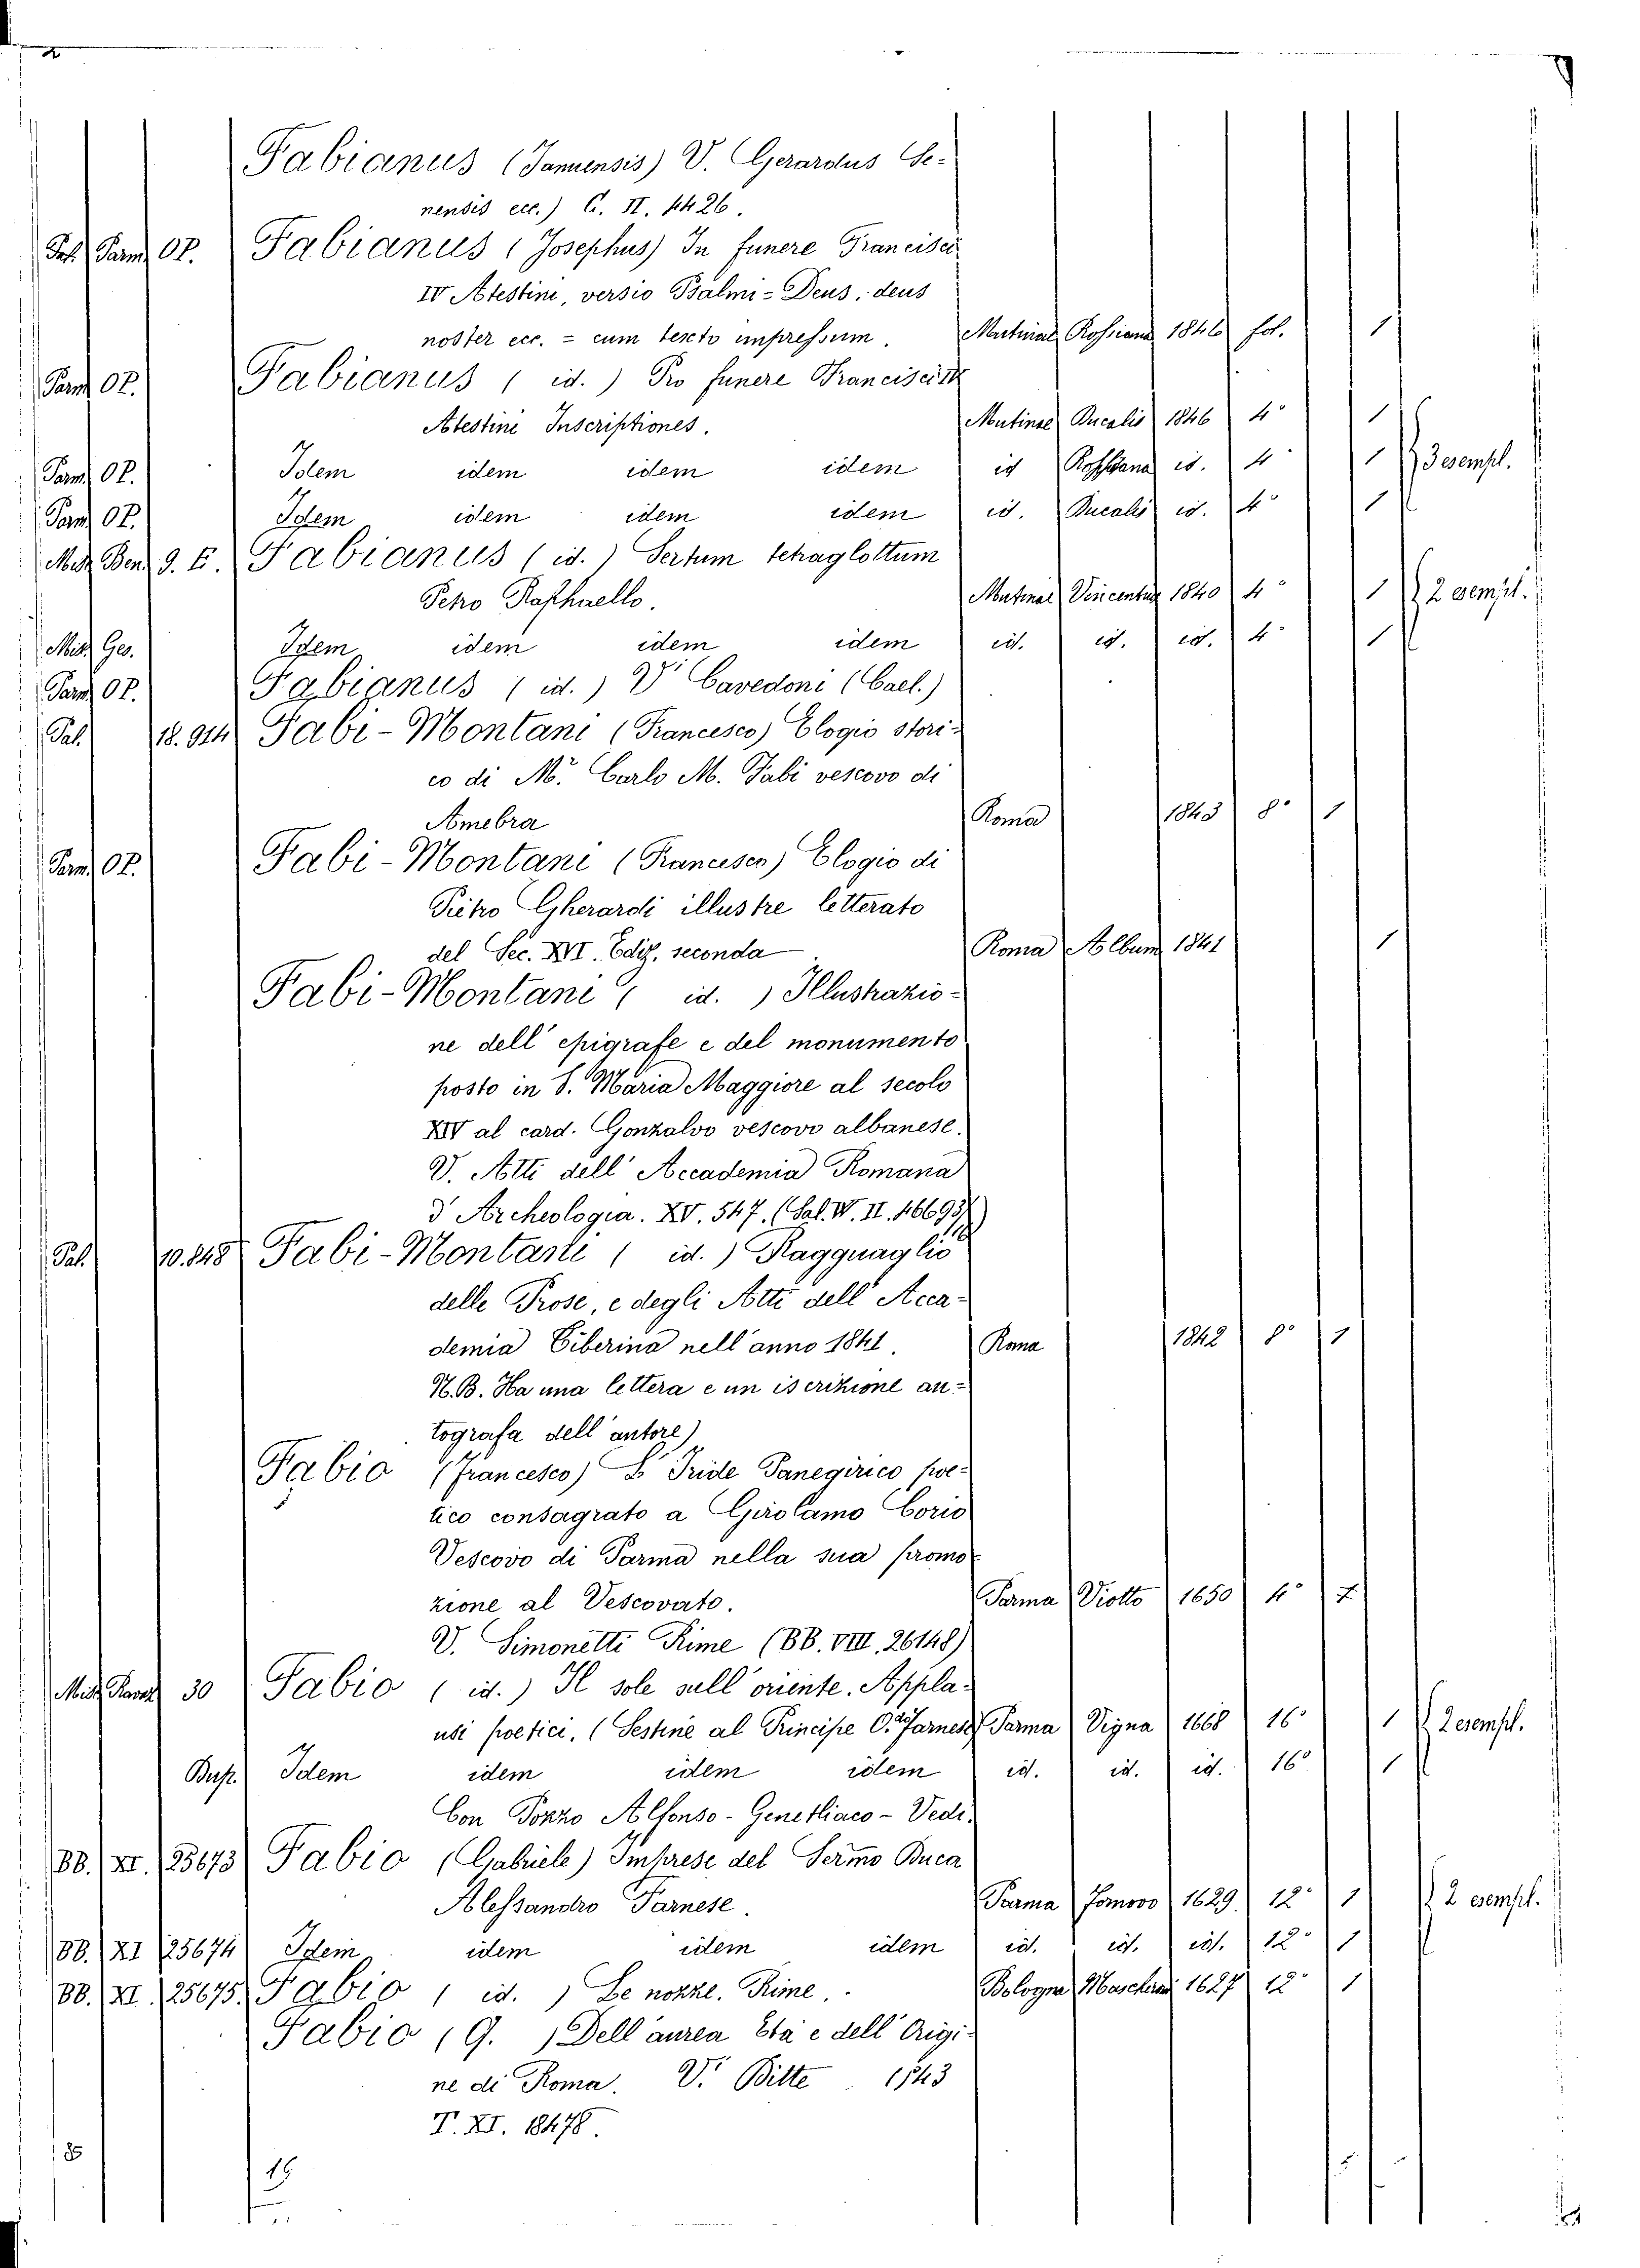 Fabianus (Januensis) V. Gerardus Se-
nensis ecc.) C. II. 4426.
Pal. Parm. OP. Fabianus (Josephus) In funere Francisci
IV Atestini, versio Psalmi = Deus, deus
noster ecc. = cum texto impressum. Mutinae Rossiana 1846 fol. 1
Parm. OP. Fabianus ( id. ) Pro funere Francisci IV
Atestini Inscriptiones. Mutinae Ducalis 1846 4° 1
Parm. OP. Idem idem idem idem id Rossiana id. 4° 1 3 esempl.
Parm. OP. Idem idem idem idem id. Ducalis id. 4° 1
Misc. Ben. 9. E. Fabianus ( id. ) Sertum tetraglottum
Petro Raphaello. Mutinae Vincentius 1840 4° 1 2 esempl.
Misc. Ges. Idem idem idem idem id. id. id. 4° 1
Parm. OP. Fabianus ( id. ) Vi Cavedoni (Cael.)
Pal. 18.914 Fabi-Montani (Francesco) Elogio stori-
co di Mr. Carlo M. Fabi vescovo di
Amebra Roma 1843 8° 1
Parm. OP. Fabi-Montani (Francesco) Elogio di
Pietro Gherardi illustre letterato
del Sec. XVI. Ediz. seconda Roma Album 1841 1
Fabi-Montani ( id. ) Illustrazio-
ne dell' epigrafe e del monumento
posto in S. Maria Maggiore al secolo
XIV al card. Gonzalvo vescovo albanese.
V. Atti dell' Accademia Romana
d' Archeologia. XV. 547. (Sal. W. II. 16693/18)
Pal. 10.848 Fabi-Montani ( id. ) Ragguaglio
delle Prose, e degli Atti dell' Acca-
demia Tiberina nell' anno 1841. Roma 1842 8° 1
N.B. Ha una lettera e un iscrizione au-
tografa dell' autore)
Fabio (Francesco) L' Iride Panegirico poe-
tico consagrato a Girolamo Corio
Vescovo di Parma nella sua promo-
zione al Vescovato. Parma Viotto 1650 4° 7
V. Simonetti Rime (BB. VIII. 26148)
Misc. 30 Fabio ( id. ) Il sole sull' oriente. Appla-
usi poetici, (Sestine al Principe O.do Farnese) Parma Vigna 1668 16° 1 2 esempl.
Bup. Idem idem idem idem id. id. id. 16° 1
Con Pozzo Alfonso - Genetliaco - Vedi.
BB. XI. 25673 Fabio (Gabriele) Imprese del Sermo Duca
Alessandro Farnese. Parma Fornovo 1629. 12° 1 2 esempl.
BB. XI 25674 Idem idem idem idem id. id. id. 12° 1
BB. XI. 25675. Fabio ( id. ) Le nozze. Rime. Bologna Mascheroni 1627 12° 1
Fabio (G. ) Dell' aurea Età e dell' Origi-
ne di Roma. Vi Bitte 1543
T. XI. 18478.
85
19
5